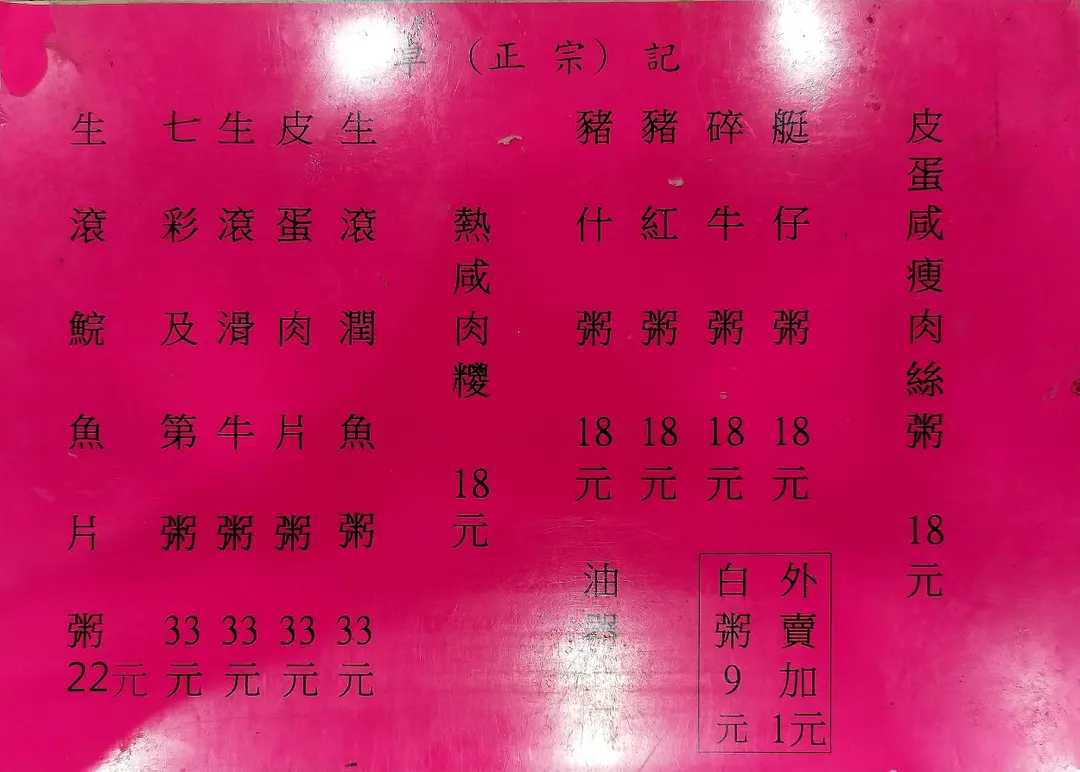 （正宗）記
皮蛋咸瘦肉絲粥 18元
艇仔粥 18元
碎牛粥 18元
豬紅粥 18元
豬什粥 18元
外賣加1元
白粥9元
油
熱咸肉糉 18元
生滾潤魚粥 33元
皮蛋肉片粥 33元
生滾滑牛粥 33元
七彩及第粥 33元
生滾鯇魚片粥 22元